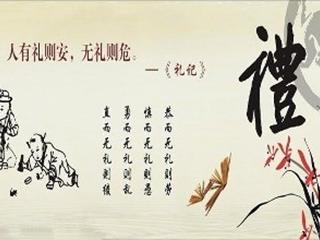 人有礼则安，无礼则危。
—《礼记》
禮
恭而无礼则劳
慎而无礼则葸
勇而无礼则乱
直而无礼则绞